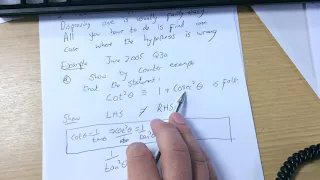 Disproving one is usually fairly easy
All you have to do is find one
case where the hypothesis is wrong
Example June 2005 Q3a
Show by counter example
that the statement:
Cot²θ ≡ 1 + cosec²θ is false
Show LHS ≠ RHS
cotθ = 1/tanθ cosec²θ = 1/
1/tan²θ